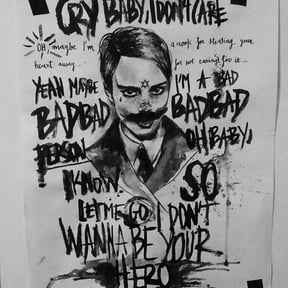 CRY BABY, I DON'T CARE
OH, maybe I'm a creep for stealing your
heart away... for not caring for it...
YEAH MAYBE I'M A BAD
BAD BAD BAD BAD
PERSON OH BABY,
I KNOW SO
LET ME GO I DON'T
WANNA BE YOUR
HERO